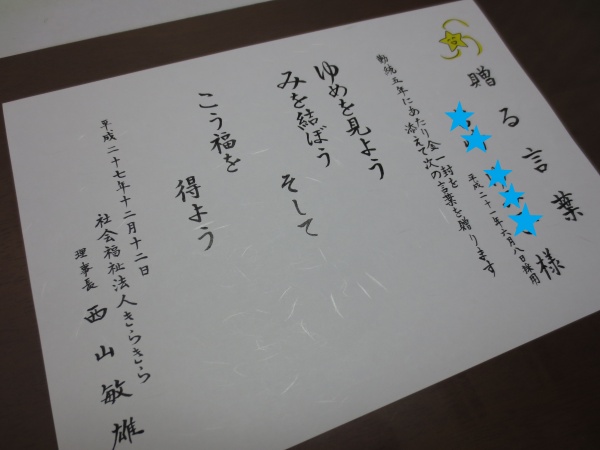 贈る言葉
様
平成二十一年六月八日採用
勤続五年にあたり金一封を
添えて次の言葉を贈ります
ゆめを見よう
みを結ぼう そして
こう福を 得よう
平成二十七年十二月十二日
社会福祉法人きらきら
理事長 西山敏雄